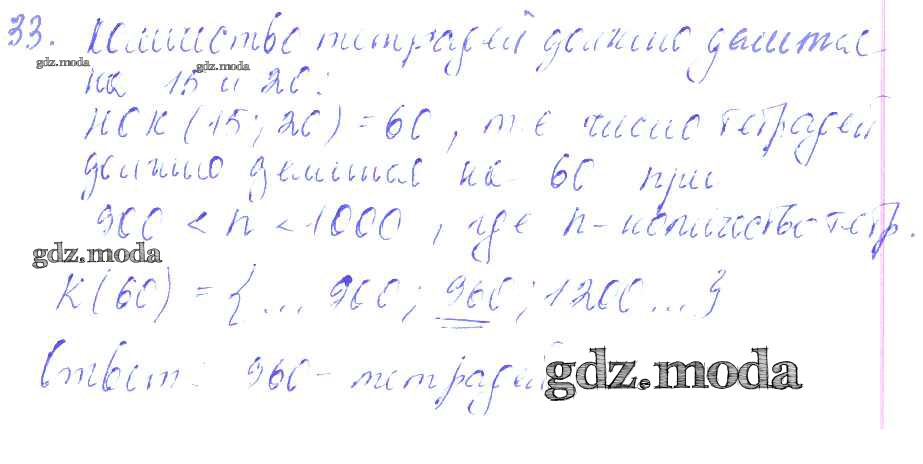 33. Количество тетрадей должно делиться
gdz.moda gdz.moda
на 15 и 20:
НОК (15; 20) = 60, т.е число тетрадей
должно делиться на 60 при
900 < n < 1000, где n - количество тетр.
gdz.moda
К(60) = {... 900; 960; 1200 ...}
Ответ: 960 - тетрадей
gdz.moda